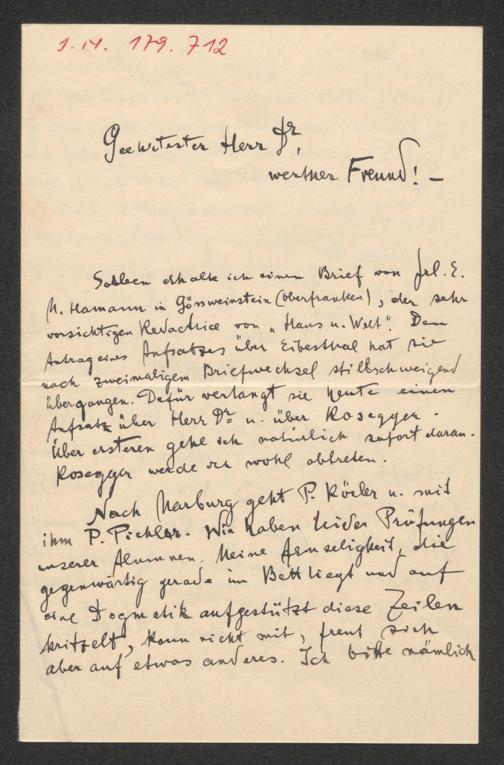 I. N. 179.712
Geehrtester Herr Dr,
werther Freund! —
Soeben erhalte ich einen Brief von Frl. E.
M. Hamann in Gössweinstein (Oberfranken), der sehr
vorsichtigen Redactrice von „Haus u. Welt“. Den
Antrag eines Aufsatzes über Eibesthal hat sie
nach zweimaligem Briefwechsel stillschweigend
übergangen. Dafür verlangt sie heute einen
Aufsatz über Herr Dr u. über Rosegger.
Über ersteren gehe ich natürlich sofort daran.
Rosegger werde ich wohl abtreten.
Nach Marburg geht P. Rösler u. mit
ihm P. Pichler. Wir haben leider Prüfungen
unserer Alumnen. Meine Armseligkeit, die
gegenwärtig gerade im Bett liegt und auf
eine Dogmatik aufgestützt diese Zeilen
kritzelt, kann nicht mit, freut sich
aber auf etwas anderes. Ich bitte nämlich